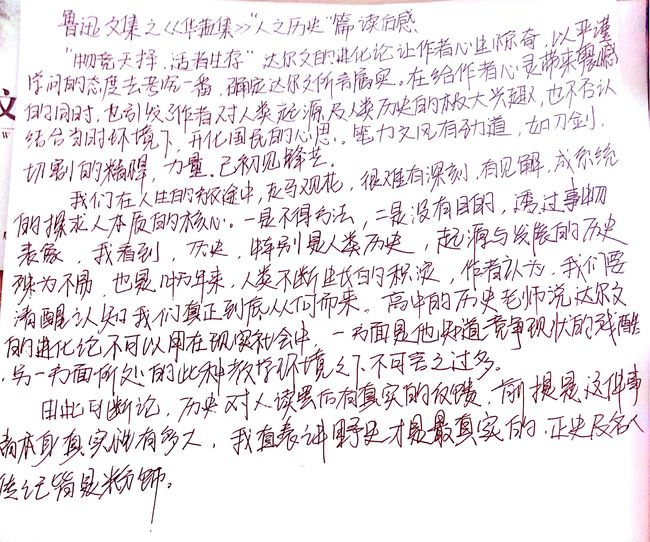 鲁迅文集之《华盖集》"人之历史"篇读后感
"物竞天择,适者生存"达尔文的进化论让作者心生惊奇,以严谨
学问的态度去考究一番,确定达尔文所言属实。在给作者心灵带来震憾
的同时,也引发了作者对人类起源及人类历史的极大兴趣,也不否认
结合当时环境下,开化国民的心思。笔力文风有劲道,如刀剑,
切割的精悍,力量已初见锋芒。
我们在人生的短途中,走马观花,很难有深刻,有见解,成系统
的探求人本质的核心。一是不得方法,二是没有目的,透过事物
表象,我看到,历史,特别是人类历史,起源与发展的历史
殊为不易,也是 年来,人类不断 的积淀,作者认为,我们要
清醒认知我们真正到底从何而来。高中的历史老师说达尔文
的进化论不可以用在现实社会中,一方面是他知道竞争现状的残酷
,另一方面所处的此种教学环境之下不可言之过多。
由此可断论,历史对人读罢后有真实的反馈,前提是这件事
本身真实性有多大,我直表讲野史才是最真实的,正史及名人
传记皆是粉饰。
文